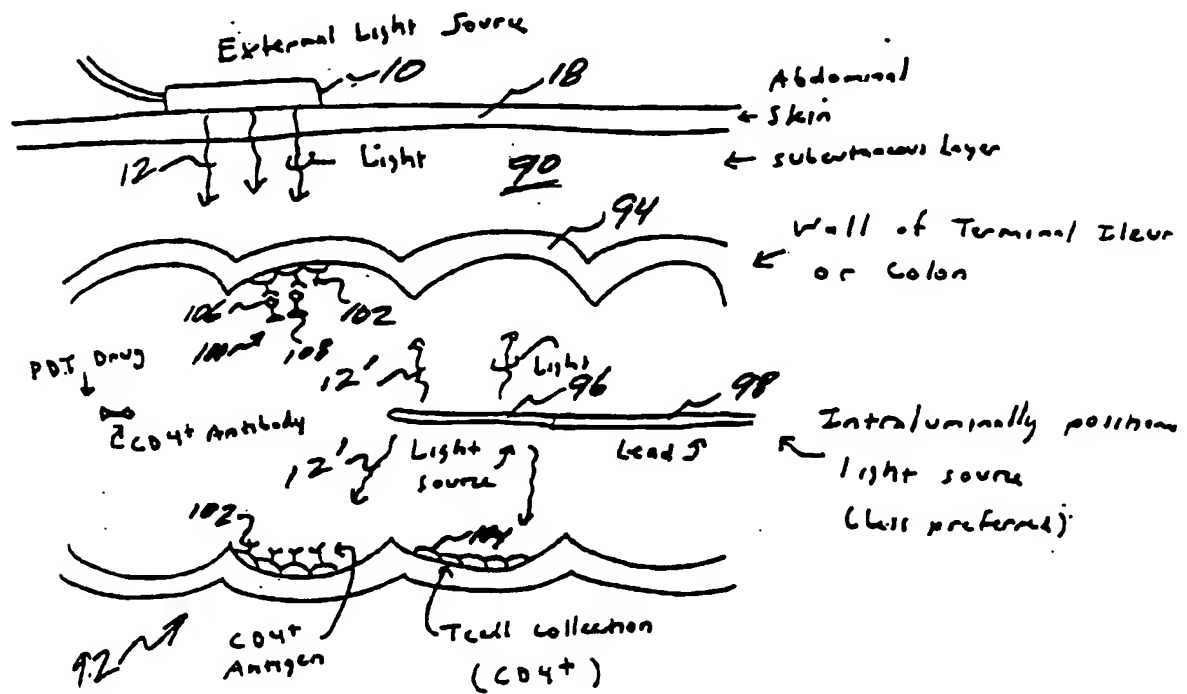 External Light Source
10
18
Abdominal
Skin
12
Light
90
subcutaneous Layer
94
Wall of Terminal Ileum
or Colon
106
102
100
108
PDT Drug
12'
Light
96
98
CD4+ Antibody
12'
Light
source
Lead
Intraluminally positions
light source
(less preferred)
102
104
92
CD4+
Antigen
Tcell collection
(CD4+)